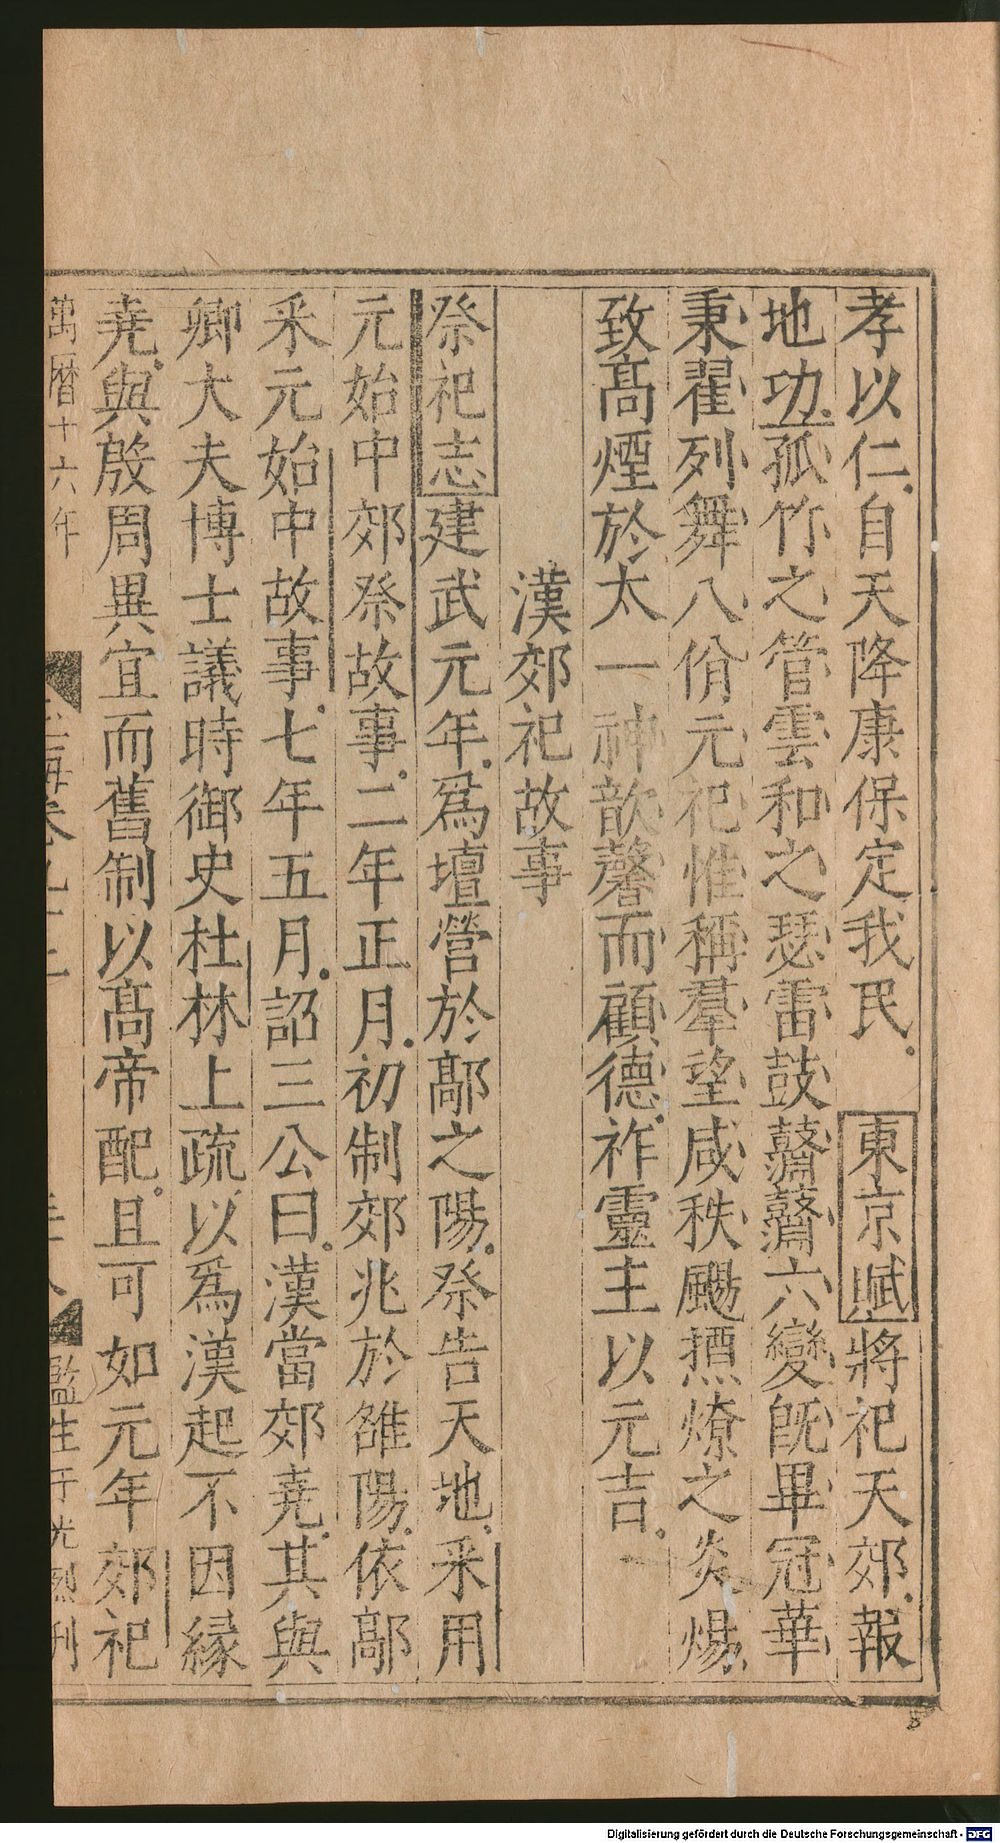 孝以仁自天降康保定我民　東京賦將祀天郊報
地功孤竹之管雲和之瑟雷鼓鼘鼘六變旣畢冠華
秉翟列舞八佾元祀惟稱羣望咸秩颺槱燎之炎煬
致高煙於太一神歆馨而顧德祚靈主以元吉
漢郊祀故事
祭祀志建武元年爲壇營於鄗之陽祭告天地采用
元始中郊祭故事二年正月初制郊兆於雒陽依鄗
采元始中故事七年五月詔三公曰漢當郊堯其與
卿大夫博士議時御史杜林上疏以爲漢起不因緣
堯與殷周異宜而舊制以高帝配且可如元年郊祀
萬曆十六年
玉海卷九十
監生于光烈刊
Digitalisierung gefördert durch die Deutsche Forschungsgemeinschaft - DFG